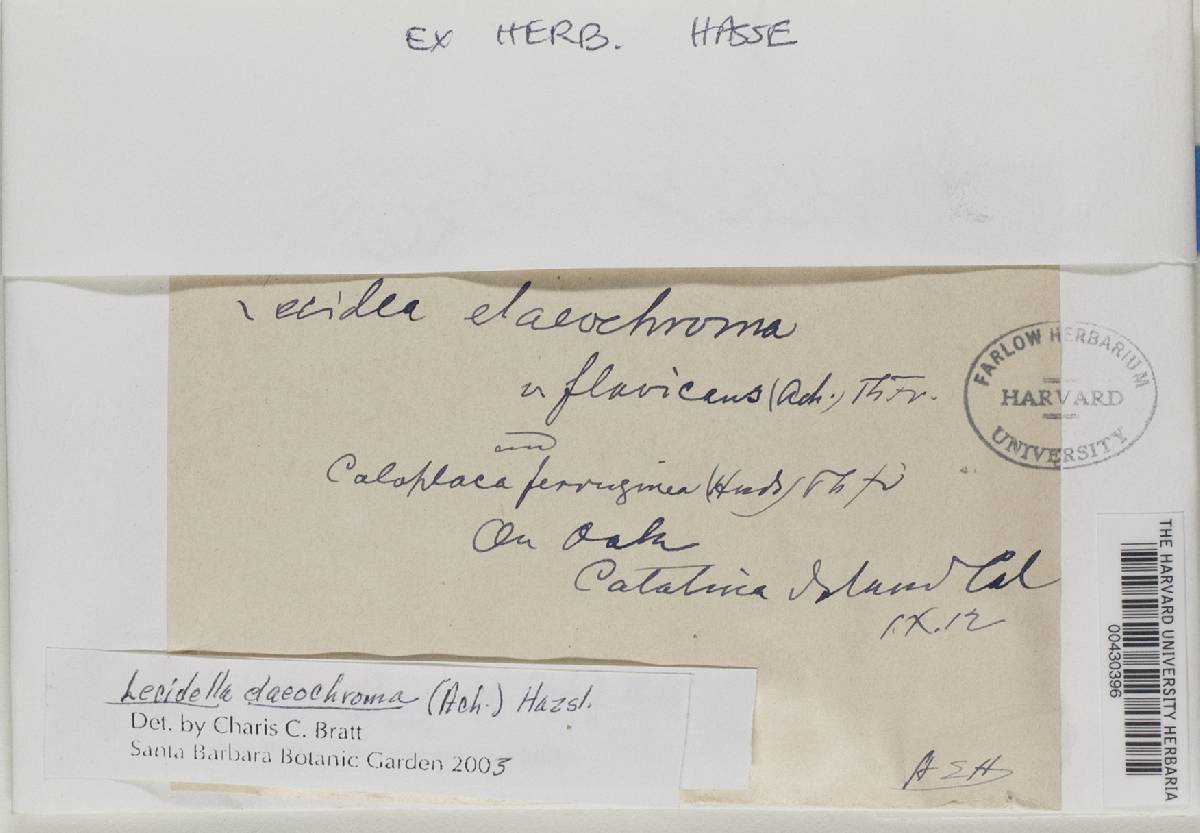 EX HERB. HASSE
Lecidea elaeochroma
v flavicans (Ach.) Th Fr.
and
Caloplaca ferruginea (Huds) Th fr
On Oak
Catalina Island Cal
1.X.12
HEH
FARLOW HERBARIUM
HARVARD
UNIVERSITY
THE HARVARD UNIVERSITY HERBARIA
00430396
Lecidella elaeochroma (Ach.) Hazsl.
Det. by Charis C. Bratt
Santa Barbara Botanic Garden 2003